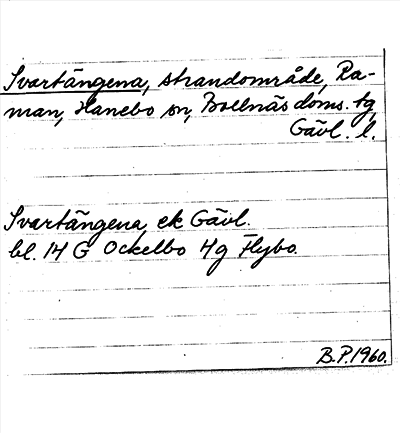 Svartängena, strandområde, Ra-
man, Hanebo sn, Bollnäs doms. tg,
Gävl. l.
Svartängena, ek Gävl.
bl. 14 G Ockelbo 4g Flybo.
B.P. 1960.